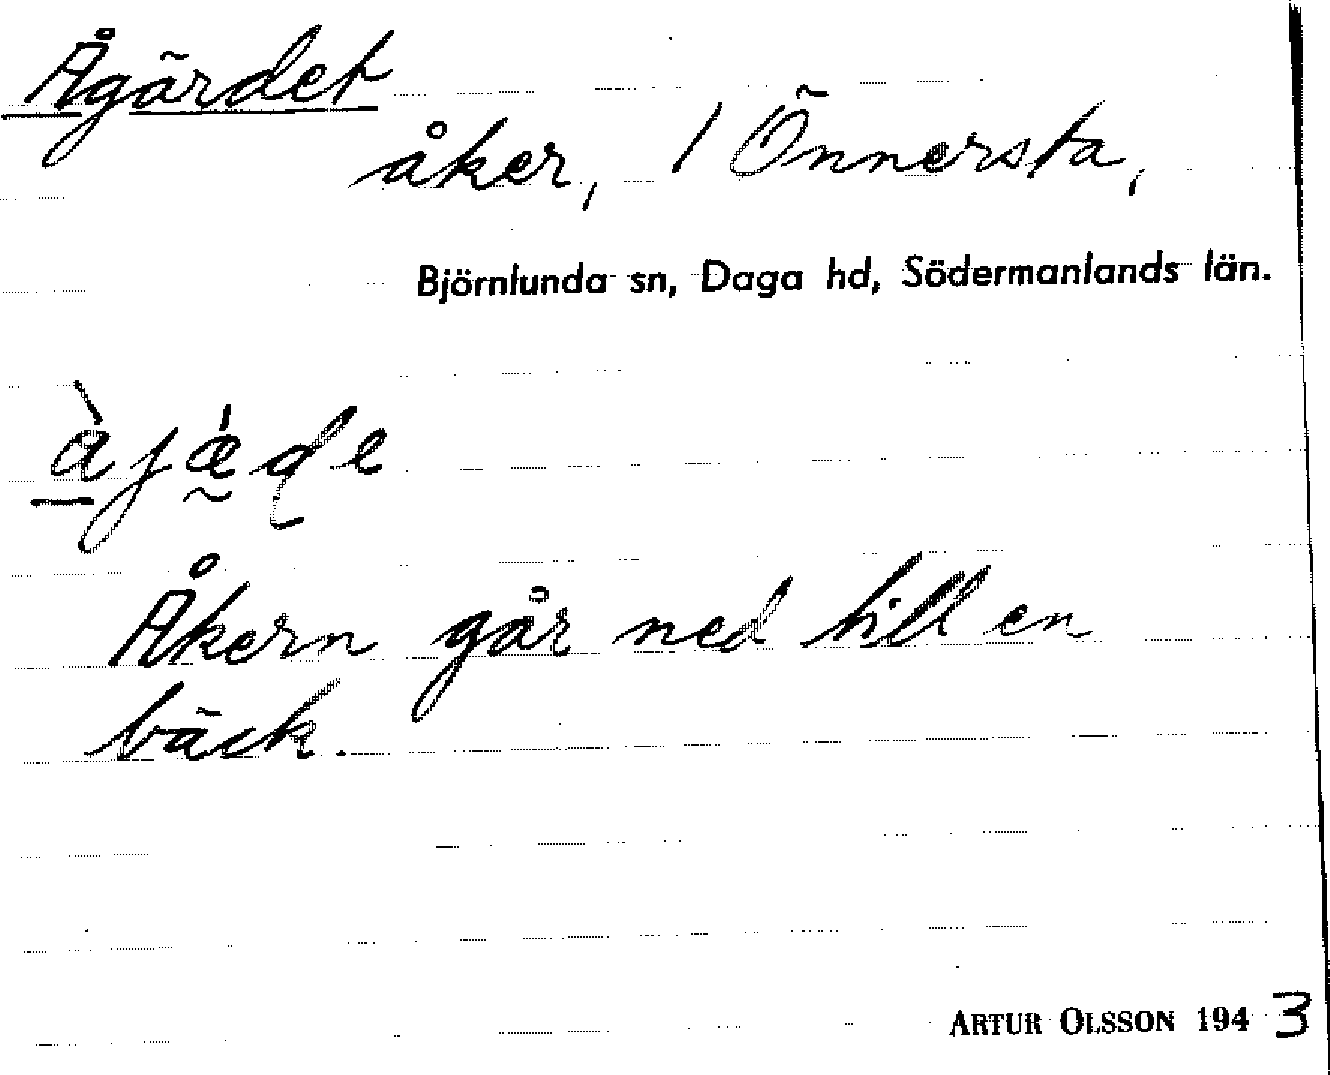 Ågärdet
åker, 1 Önnersta,
Björnlunda sn, Daga hd, Södermanlands län.
Åkern går ned till en
bäck.
ARTUR OLSSON 1943